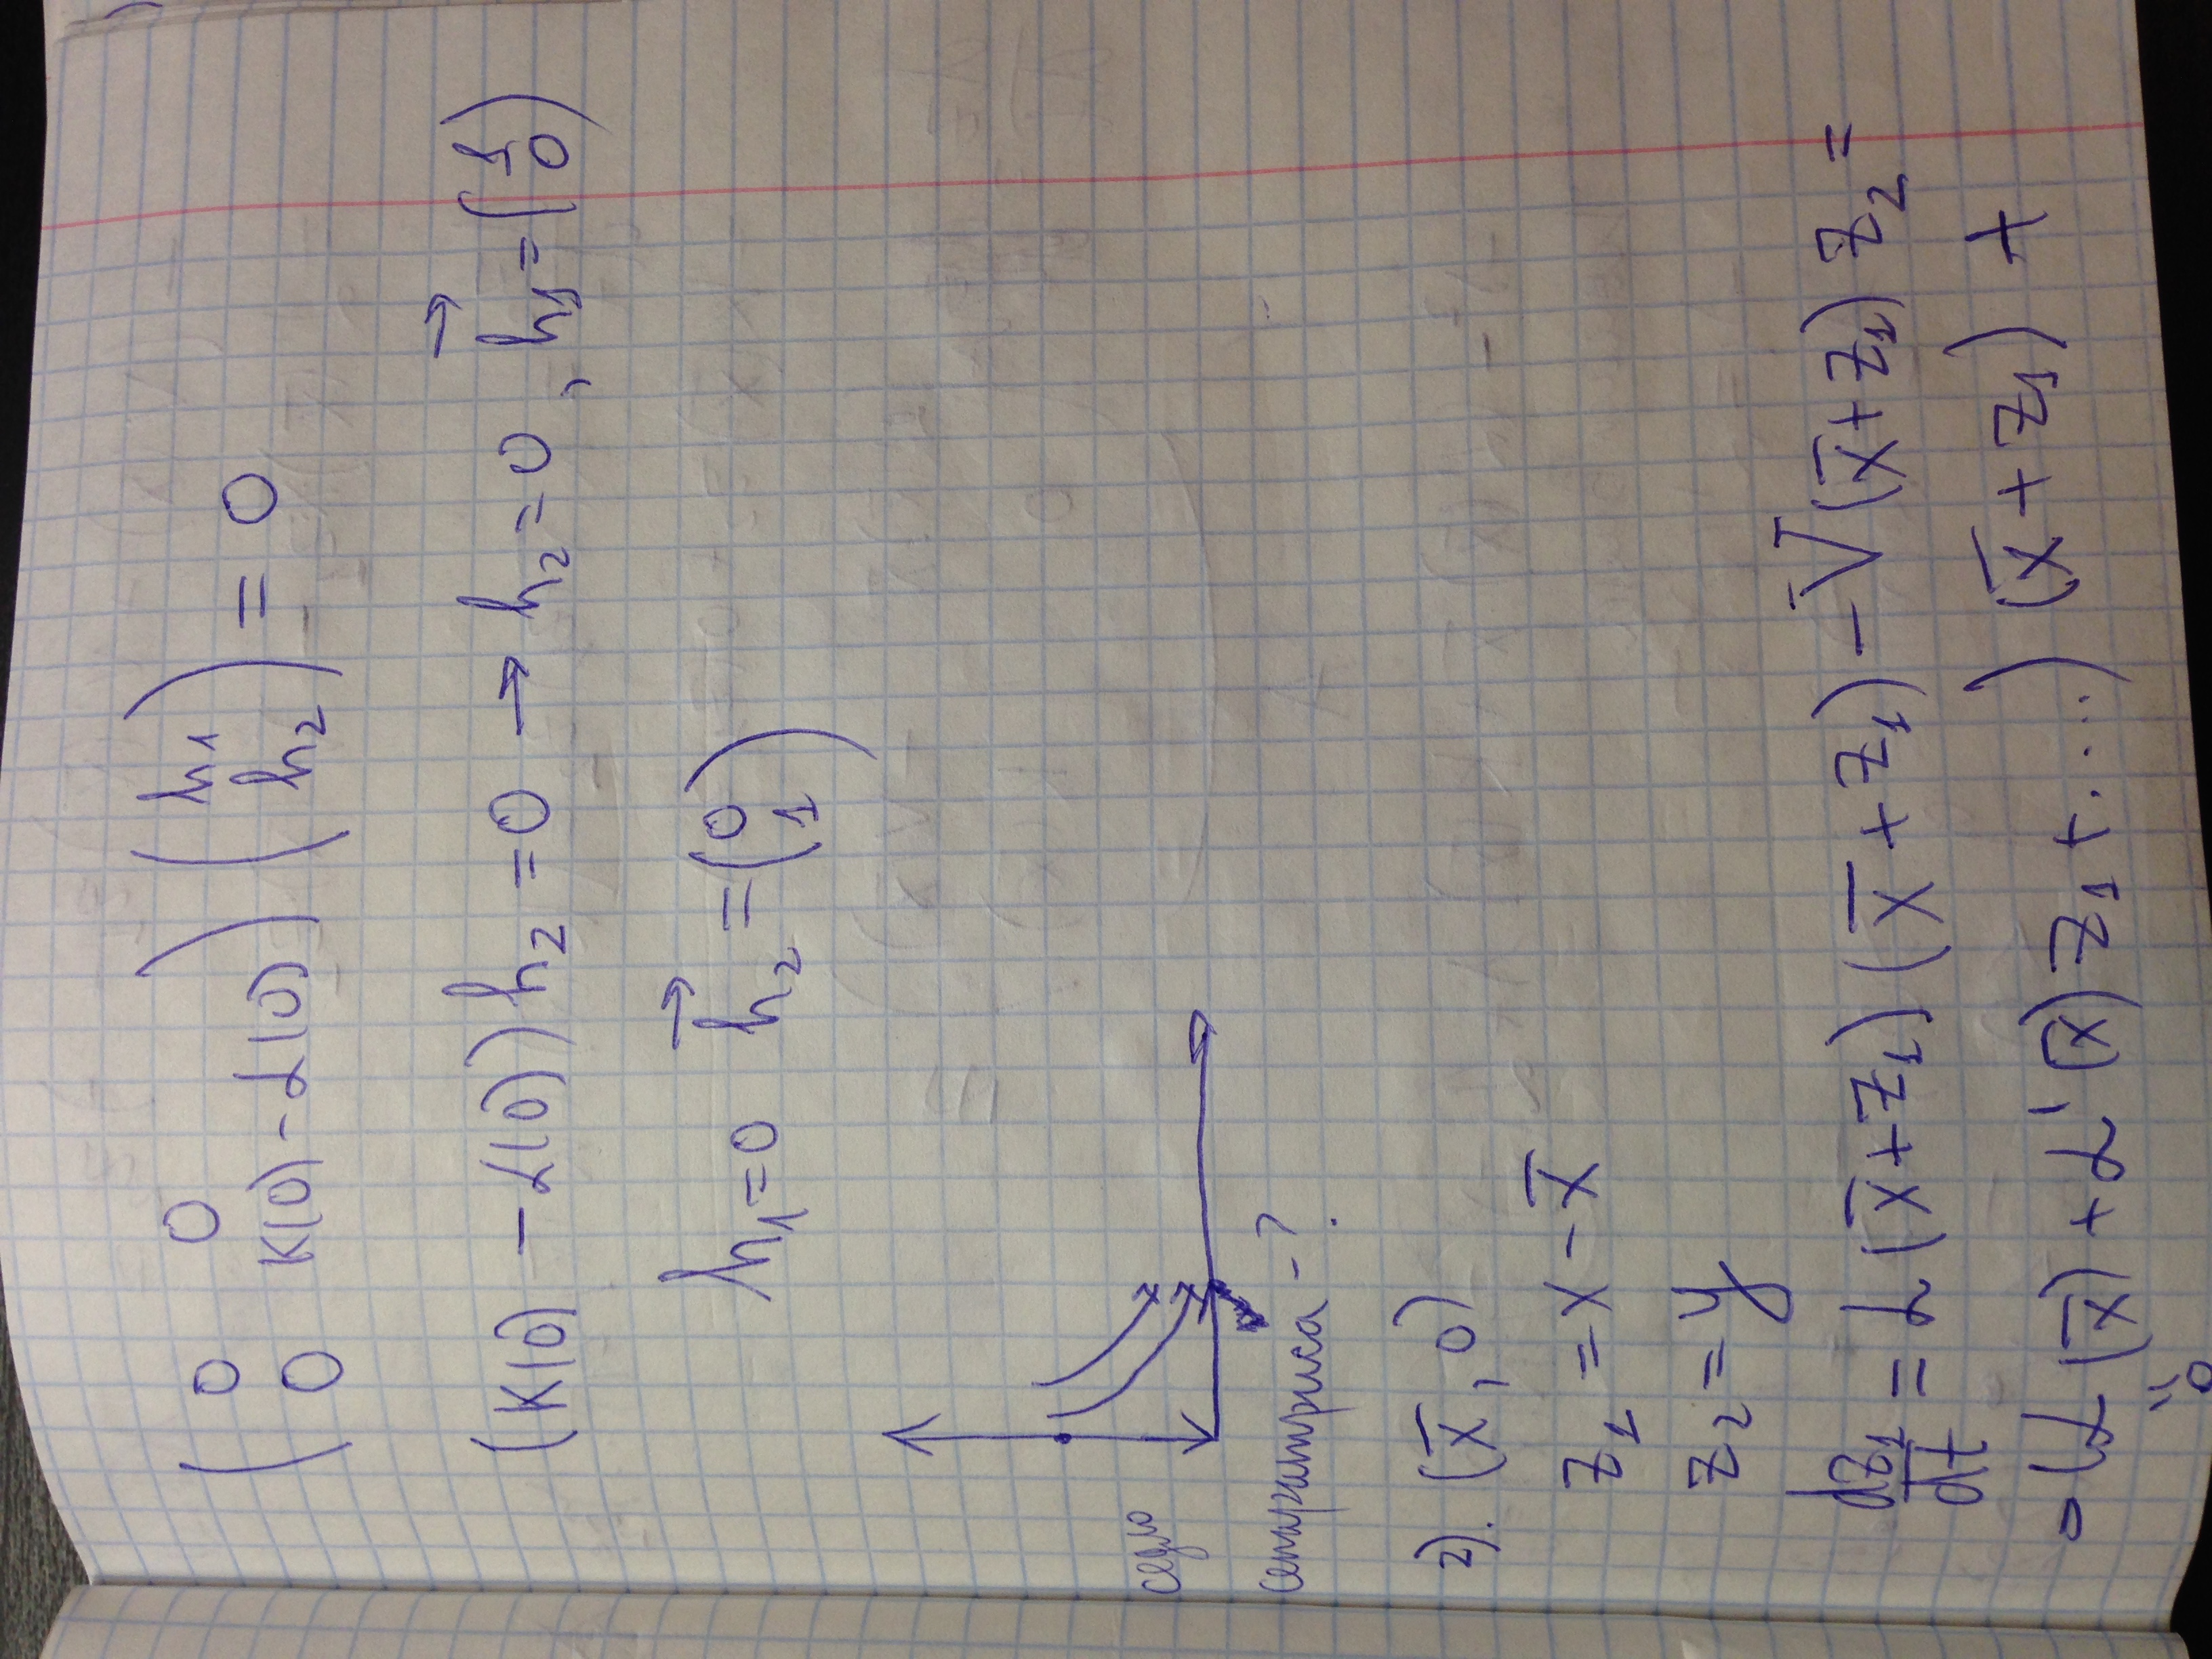 ( 0 0
0 K(0) - α(0) ) ( h₁
h₂ ) = 0
(K(0) - α(0)) h₂ = 0 → h₂ = 0, h⃗₁ = ( 1
0 )
h₁ = 0 h⃗₂ = ( 0
1 )
седло
сепаратриса - ?
2). (x̄, 0)
z₁ = x - x̄
z₂ = y
dz₁/dt = α(x̄ + z₁)(x̄ + z₁) - V(x̄ + z₁) z₂ =
= (α(x̄) + α'(x̄) z₁ + ....) (x̄ + z₁) +
"
0